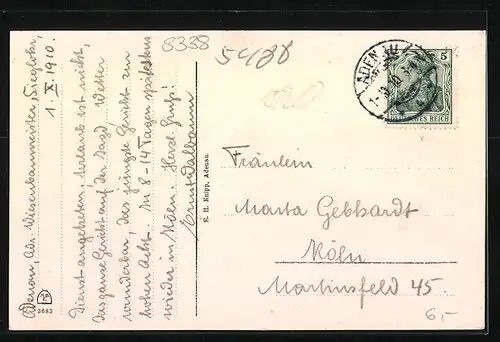 8338
5488
Adenau, Adr. Wiesenbaumeister, Siegloher,
1. X. 1910.
Dienst angetreten, Urlaub ist nicht,
das ganze Gericht auf der Jagd. Wetter
wunderbar, das jüngste Gericht zur
hohen Acht. In 8-14 Tagen spätestens
wieder in Köln. Herzl. Gruß!
Ernst
E. H. Knipp, Adenau.
3683
ADENAU
5
DEUTSCHES REICH
Fräulein
Marta Gebhardt
Köln
Martinsfeld 45.
6,-